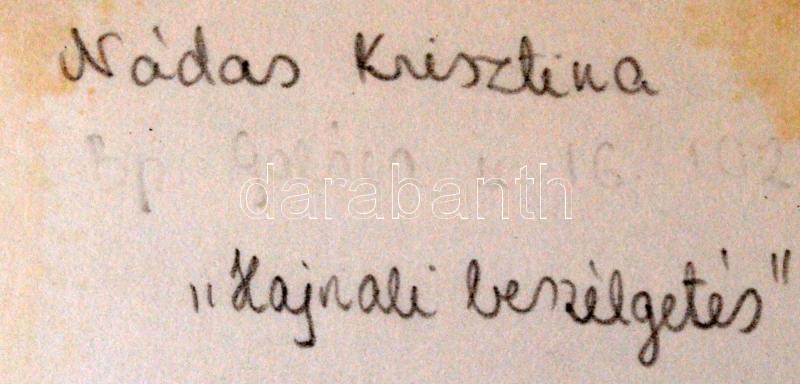 Nádas Krisztina
Bp. u. 16.
darabanth
„Hajnali beszélgetés"